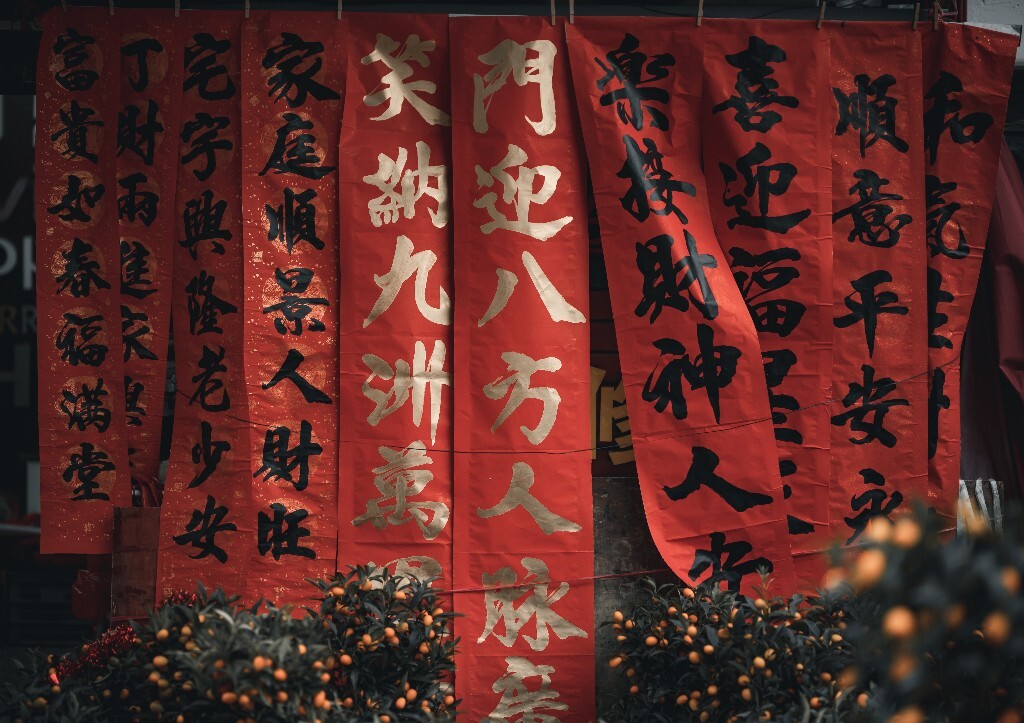 和氣生
順意平安永
喜迎福
樂接財神人安
門迎八方人脈廣
笑納九洲萬
家庭順景人財旺
宅宇興隆老少安
丁財兩進家
富貴如春福滿堂